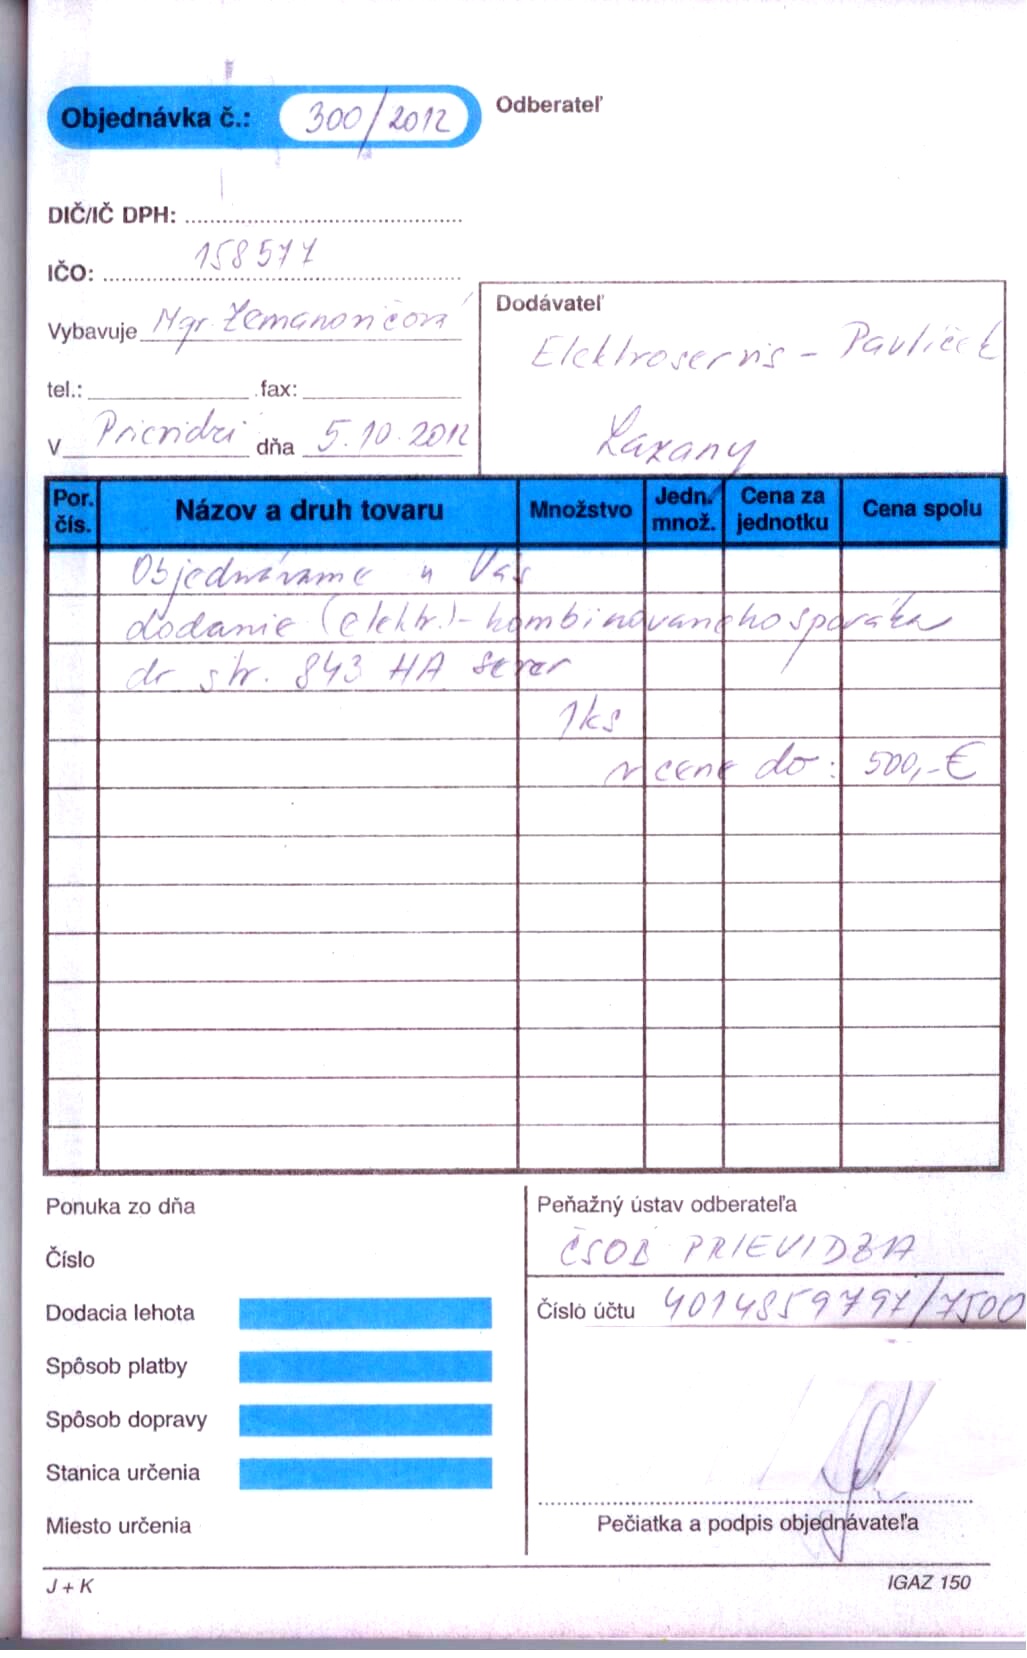 Objednávka č.: 300/2012
Odberateľ
DIČ/IČ DPH:
IČO: 158577
Vybavuje Mgr. Zemanovičová
tel.: fax:
V Prievidzi dňa 5.10.2012
Dodávateľ
Elektroservis - Pavlíček
Lazany
Por. čís.
Názov a druh tovaru
Množstvo
Jedn. množ.
Cena za jednotku
Cena spolu
Objednávame u Vás
dodanie (elektr.) - kombinovaného sporáka
do str. 843 HA
1ks
v cene do: 500,-€
Ponuka zo dňa
Číslo
Dodacia lehota
Spôsob platby
Spôsob dopravy
Stanica určenia
Miesto určenia
Peňažný ústav odberateľa
ČSOB PRIEVIDZA
Číslo účtu 4014859797/7500
Pečiatka a podpis objednávateľa
J + K
IGAZ 150